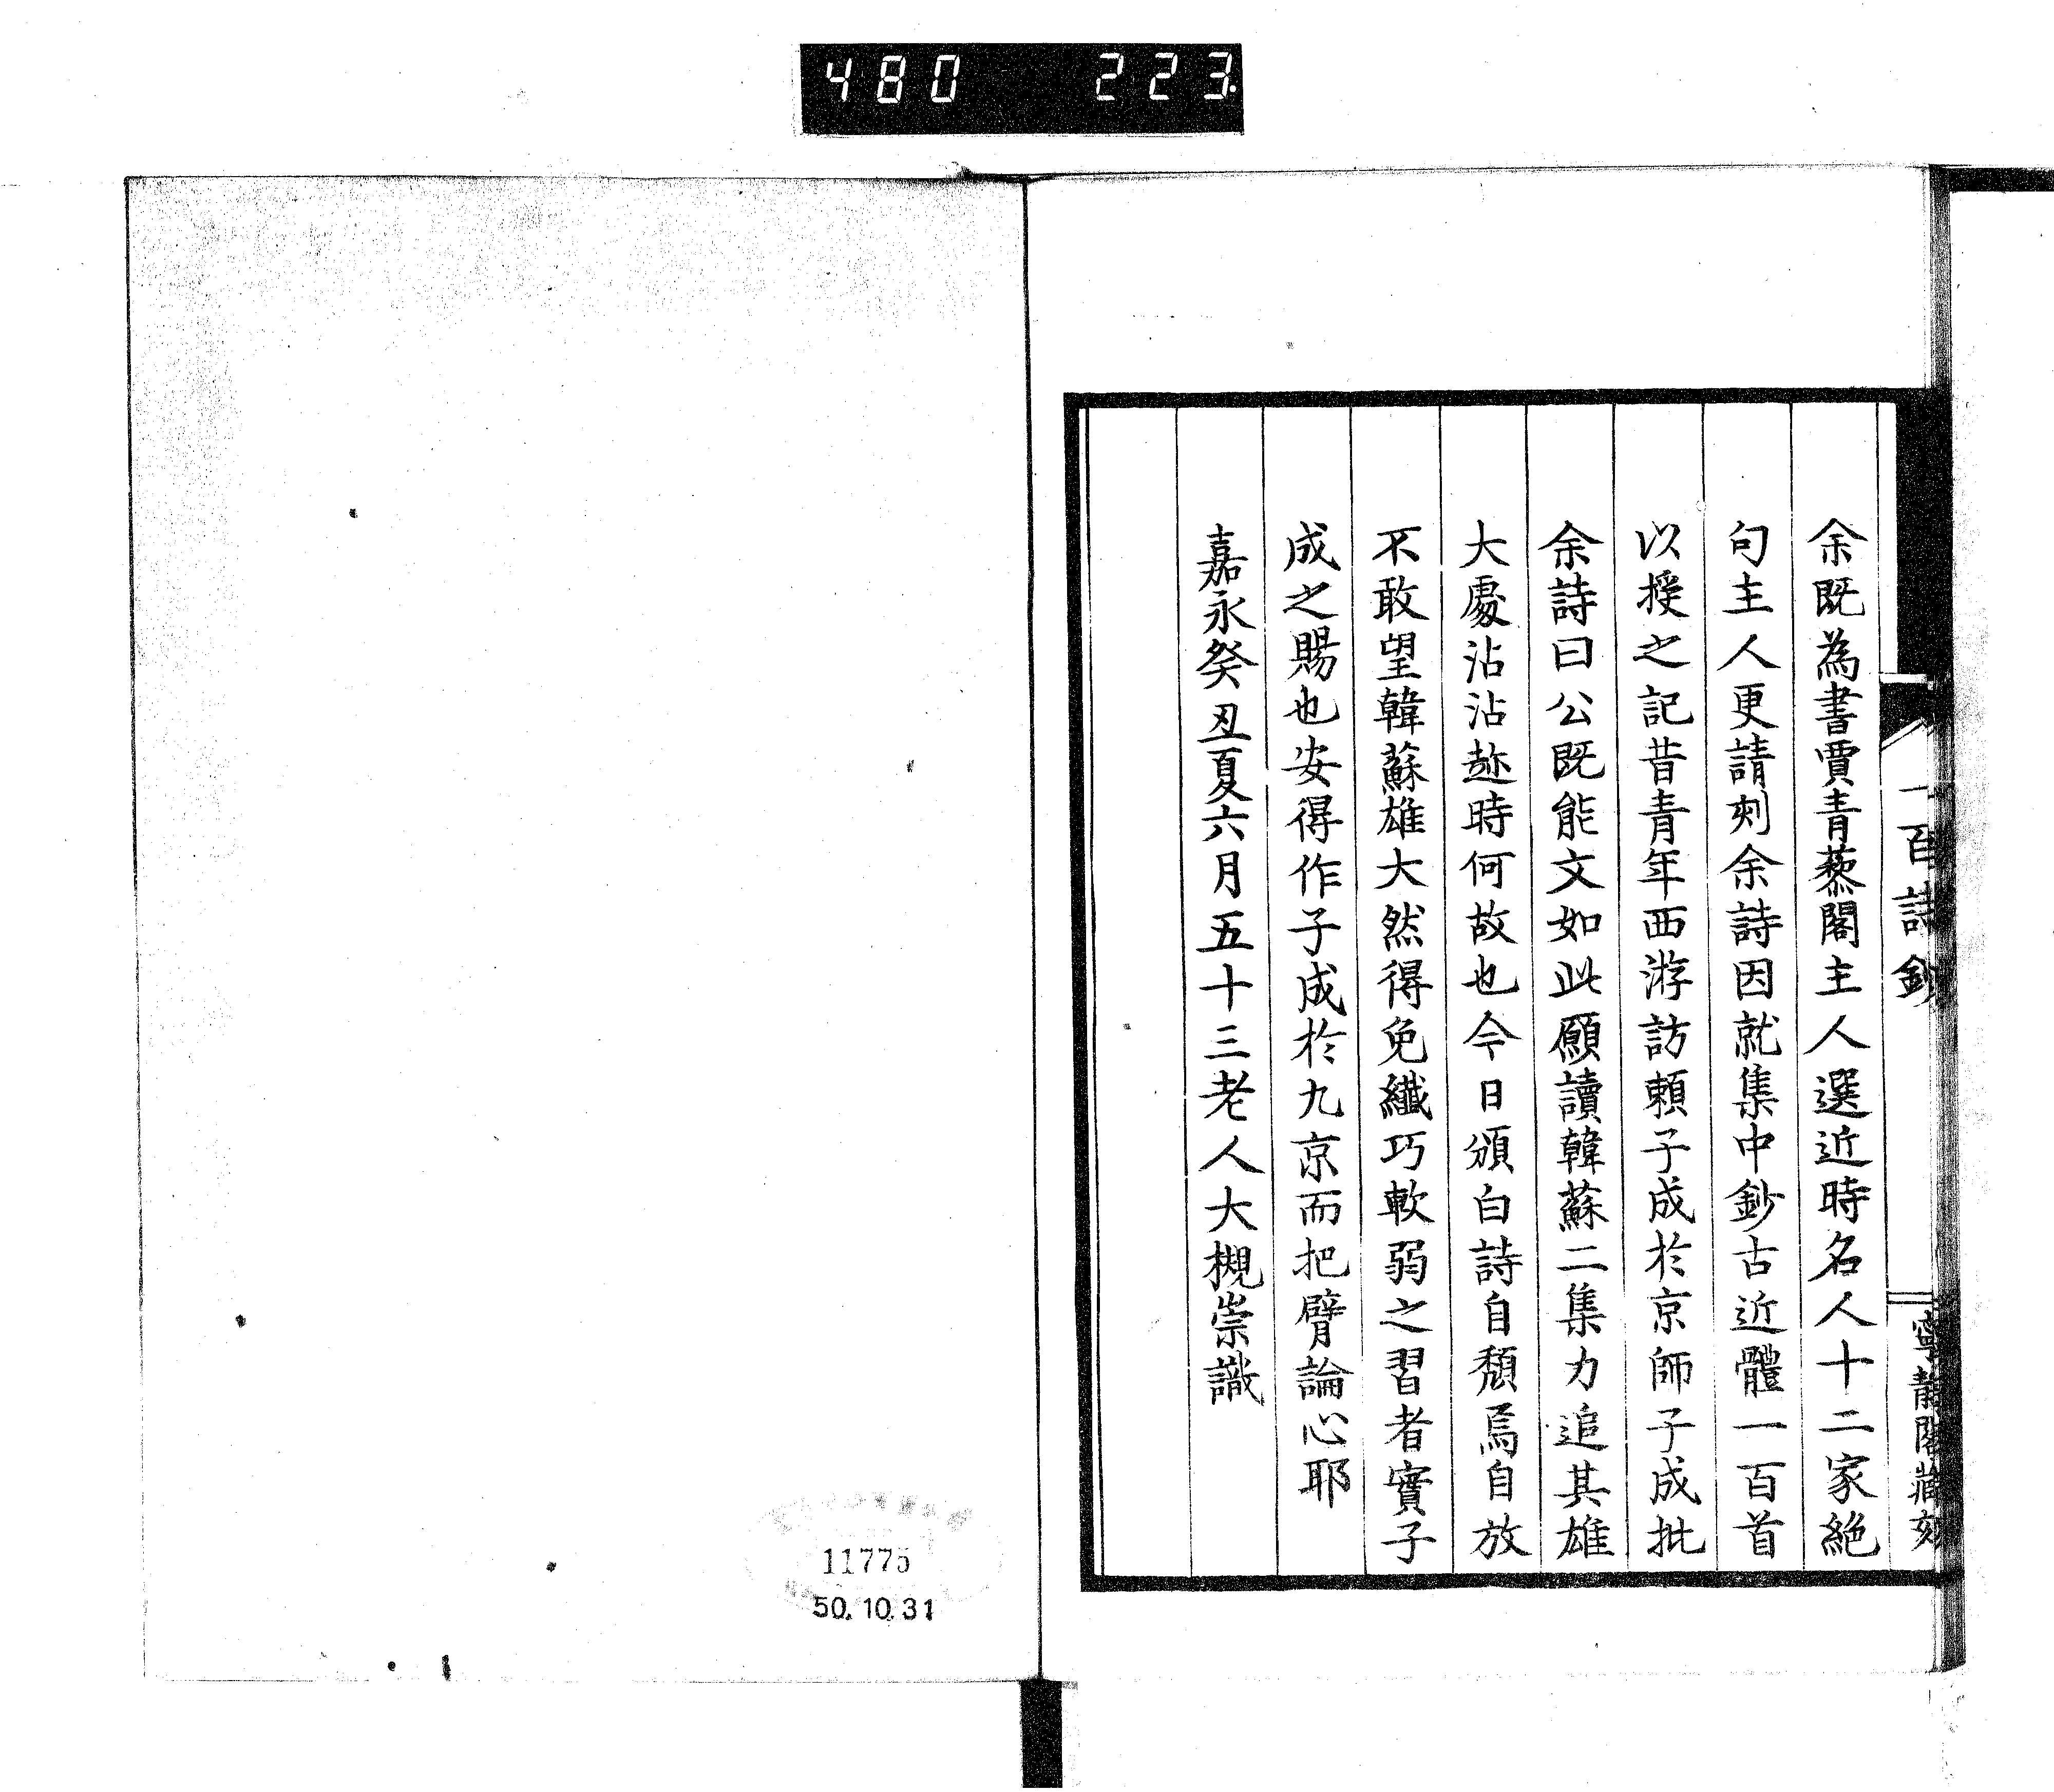 480 223.
一百詩鈔
寧靜閣藏刻
余既為書賈青藜閣主人選近時名人十二家絶
句主人更請刻余詩因就集中鈔古近體一百首
以授之記昔青年西游訪頼子成於京師子成批
余詩曰公既能文如此願讀韓蘇二集力追其雄
大處沾沾趂時何故也今日頒白詩自頽焉自放
不敢望韓蘇雄大然得免纖巧軟弱之習者實子
成之賜也安得作子成於九京而把臂論心耶
嘉永癸丑夏六月五十三老人大槻崇識
11775
50.10.31